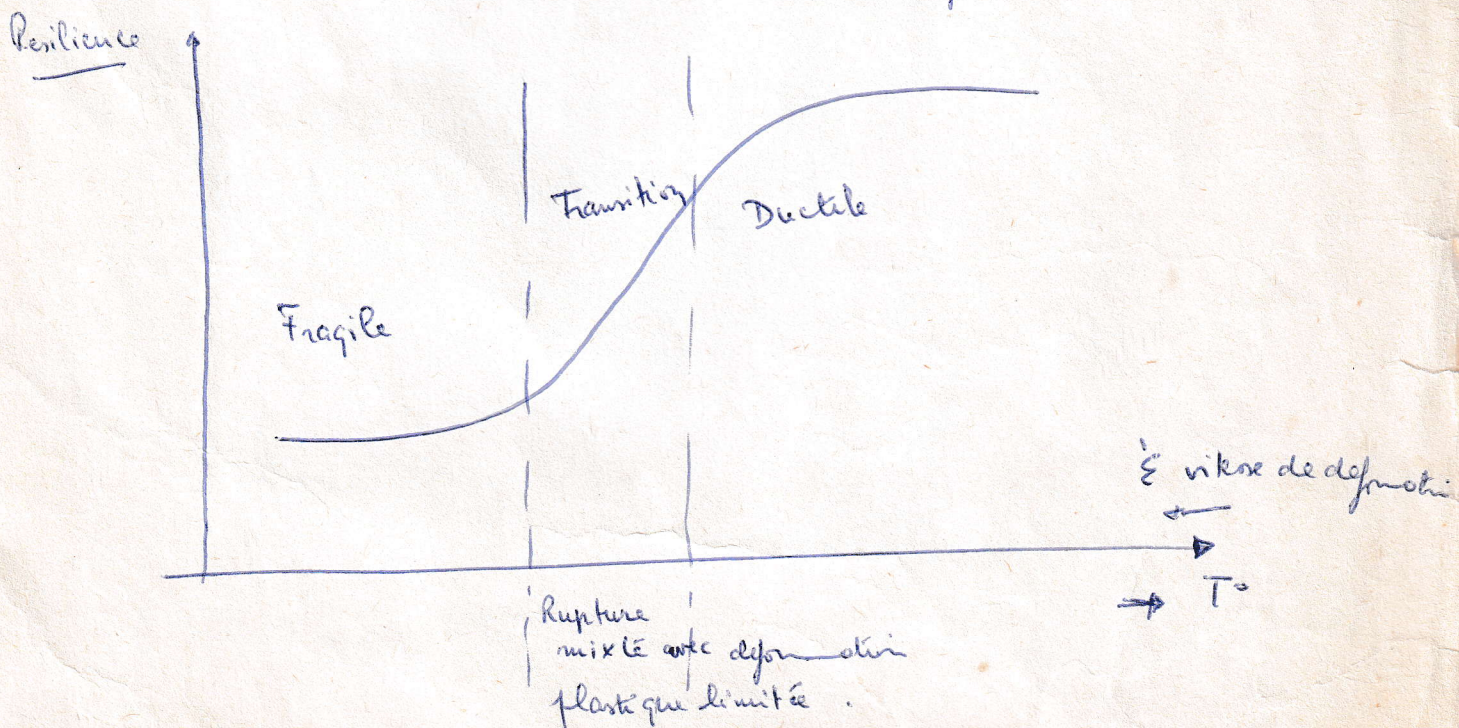 Resilience
Transition
Ductile
Fragile
ε̇ vitesse de deformation
T°
Rupture
mixte avec deformation
plastique limitée .